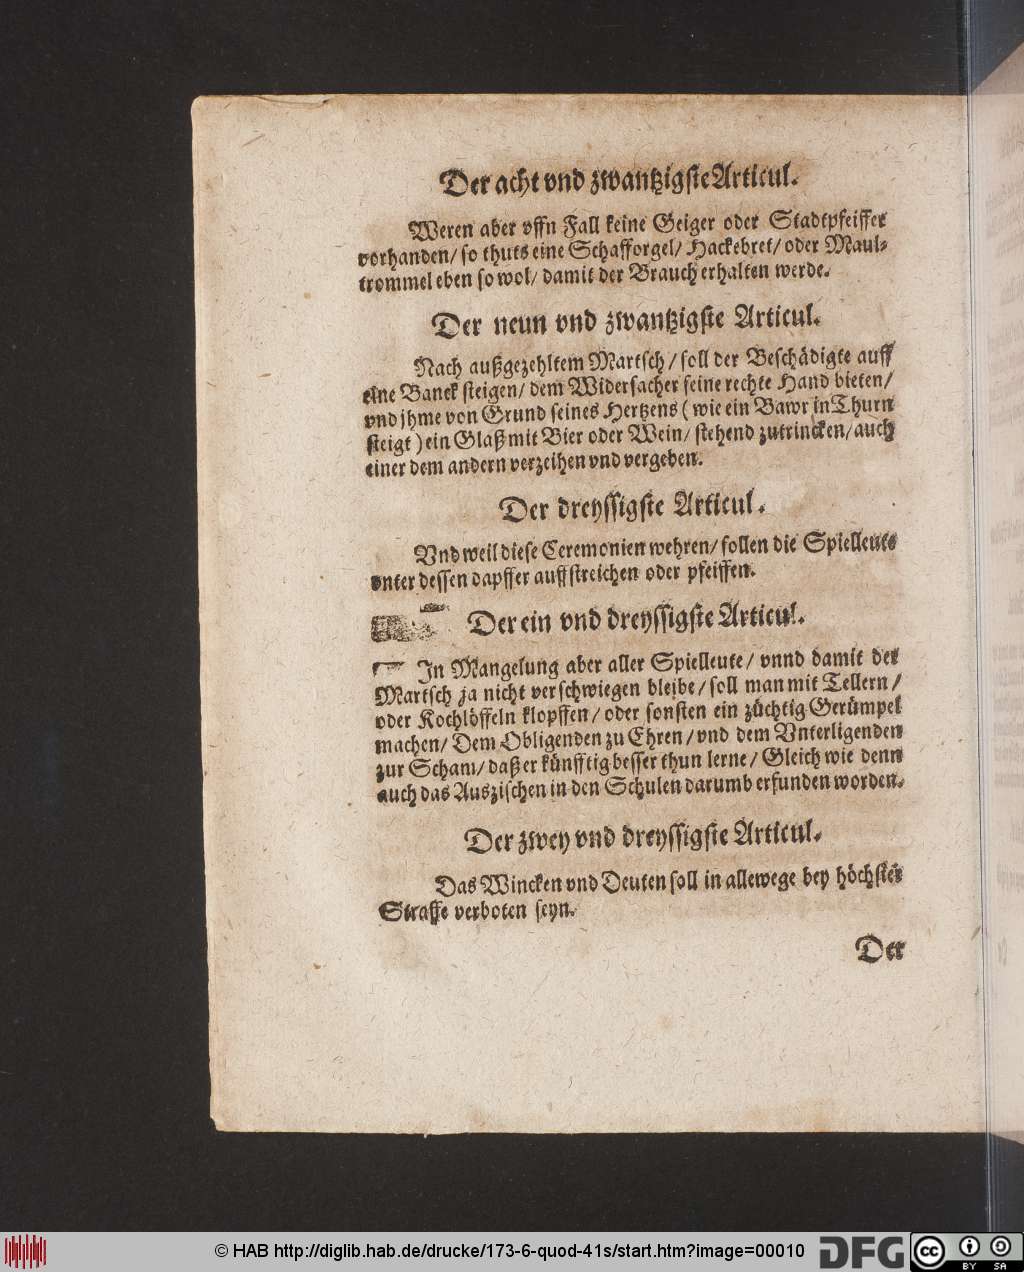 Der acht vnd zwantzigste Articul.
Weren aber vffn Fall keine Geiger oder Stadtpfeiffer
vorhanden/ so thuts eine Schafforgel/ Hackebret/ oder Maul-
trommel eben so wol/ damit der Brauch erhalten werde.
Der neun vnd zwantzigste Articul.
Nach außgezehltem Martsch/ soll der Beschädigte auff
eine Banck steigen/ dem Widersacher seine rechte Hand bieten/
vnd jhme von Grund seines Hertzens ( wie ein Bawr in Thurn
steigt ) ein Glaß mit Bier oder Wein/ stehend zutrincken/ auch
einer dem andern verzeihen vnd vergeben.
Der dreyssigste Articul.
Vnd weil diese Ceremonien wehren/ sollen die Spielleute
vnter dessen dapffer auffstreichen oder pfeiffen.
Der ein vnd dreyssigste Articul.
In Mangelung aber aller Spielleute/ vnnd damit der
Martsch ja nicht verschwiegen bleibe/ soll man mit Tellern/
oder Kochlöffeln klopffen/ oder sonsten ein züchtig Gerümpel
machen/ Dem Obligenden zu Ehren/ vnd dem Vnterligenden
zur Scham/ daß er künfftig besser thun lerne/ Gleich wie denn
auch das Auszischen in den Schulen darumb erfunden worden.
Der zwey vnd dreyssigste Articul.
Das Wincken vnd Deuten soll in allewege bey höchster
Straffe verboten seyn.
Der
© HAB http://diglib.hab.de/drucke/173-6-quod-41s/start.htm?image=00010
DFG
cc BY SA